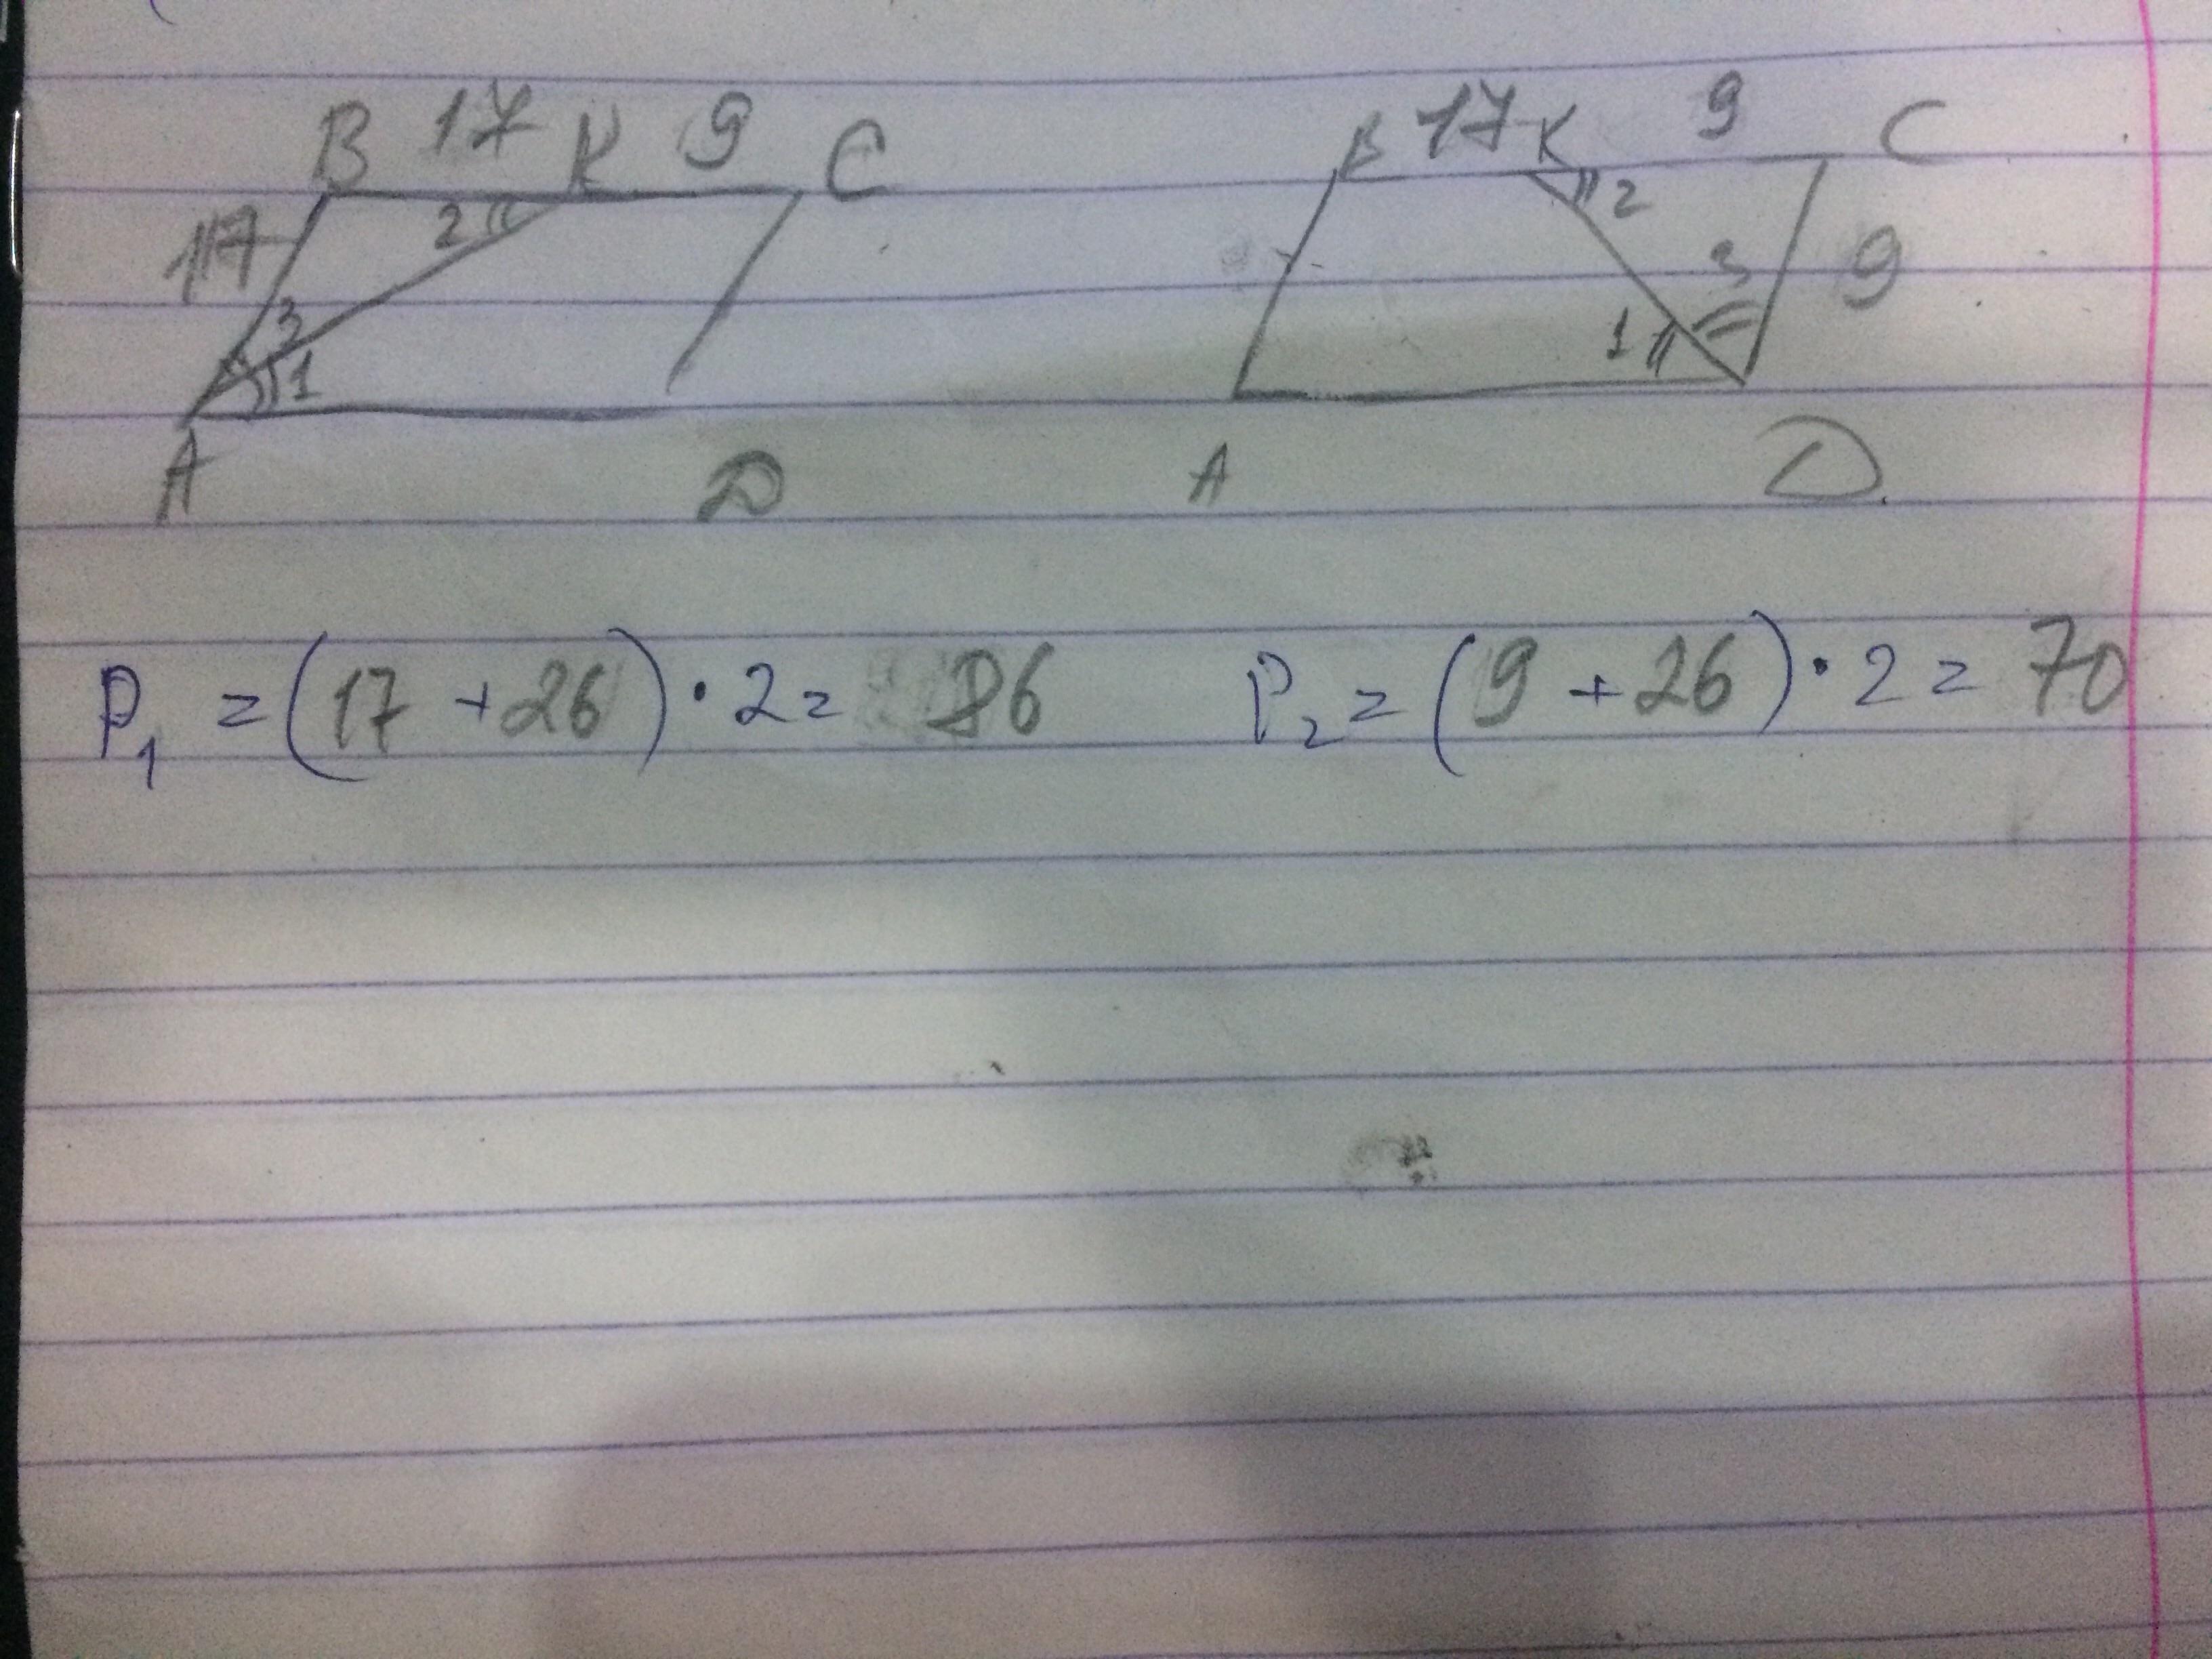 B 17 K 9 C
17 2
3
1
A D
B 17 K 9 C
2
3 9
1
A D
P₁ = (17 + 26) · 2 = 86
P₂ = (9 + 26) · 2 = 70